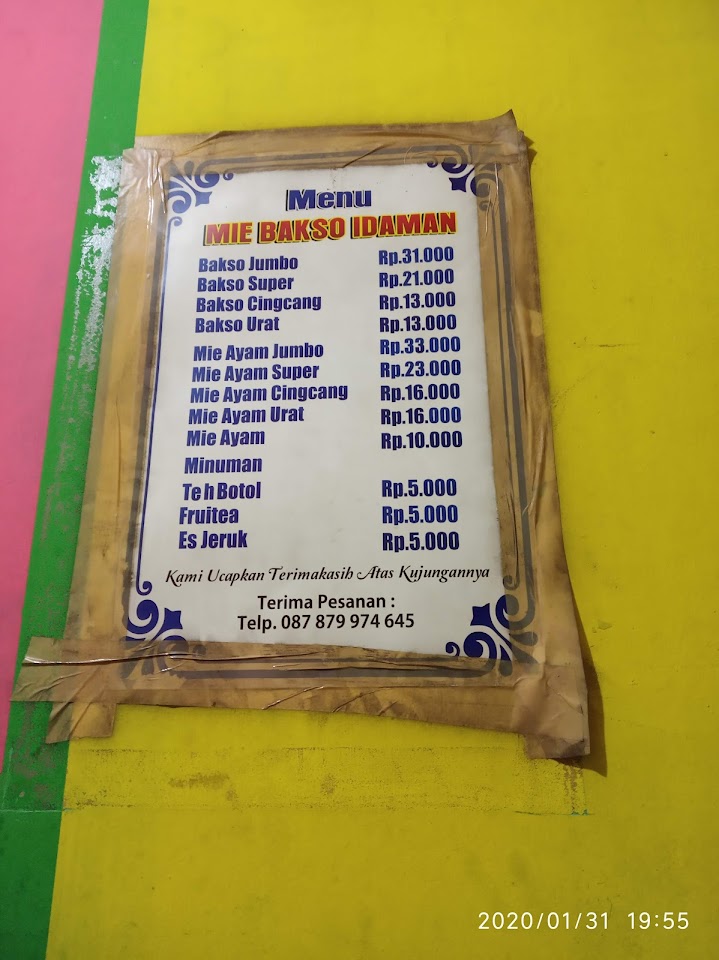 Menu
MIE BAKSO IDAMAN
Bakso Jumbo Rp.31.000
Bakso Super Rp.21.000
Bakso Cingcang Rp.13.000
Bakso Urat Rp.13.000
Mie Ayam Jumbo Rp.33.000
Mie Ayam Super Rp.23.000
Mie Ayam Cingcang Rp.16.000
Mie Ayam Urat Rp.16.000
Mie Ayam Rp.10.000
Minuman
Teh Botol Rp.5.000
Fruitea Rp.5.000
Es Jeruk Rp.5.000
Kami Ucapkan Terimakasih Atas Kujungannya
Terima Pesanan :
Telp. 087 879 974 645
2020/01/31 19:55